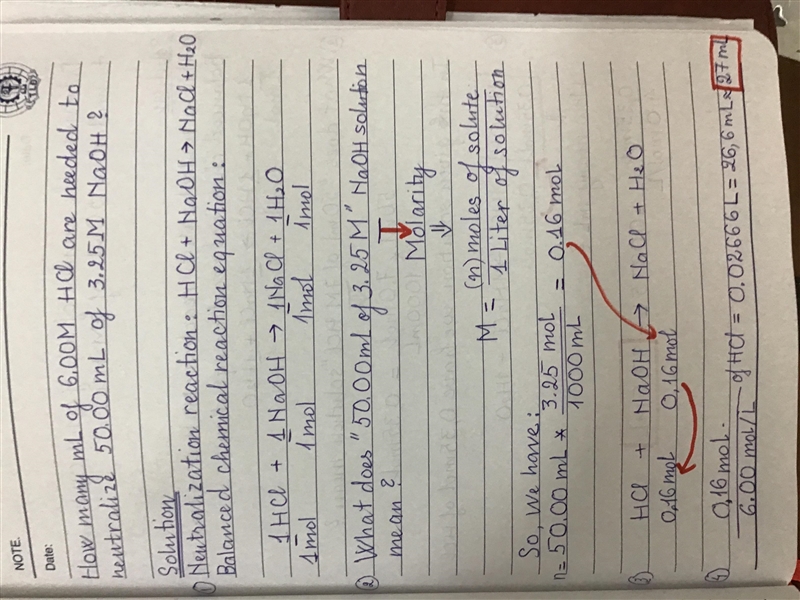 NOTE.
Date:
How many mL of 6.00M HCl are needed to
neutralize 50.00 mL of 3.25M NaOH?
Solution
① Neutralization reaction: HCl + NaOH → NaCl + H2O
Balanced chemical reaction equation:
1HCl + 1NaOH → 1NaCl + 1H2O
1mol 1mol 1mol 1mol
② What does "50.00ml of 3.25 M" NaOH solution
mean?
Molarity
⇓
M = (n) moles of solute / 1 Liter of solution
So, we have:
n = 50.00 mL * 3.25 mol / 1000 mL = 0.16 mol
③ HCl + NaOH → NaCl + H2O
0,16mol 0,16mol
④ 0,16 mol / 6.00 mol/L of HCl = 0.02666 L = 26,6 mL ≈ 27 mL